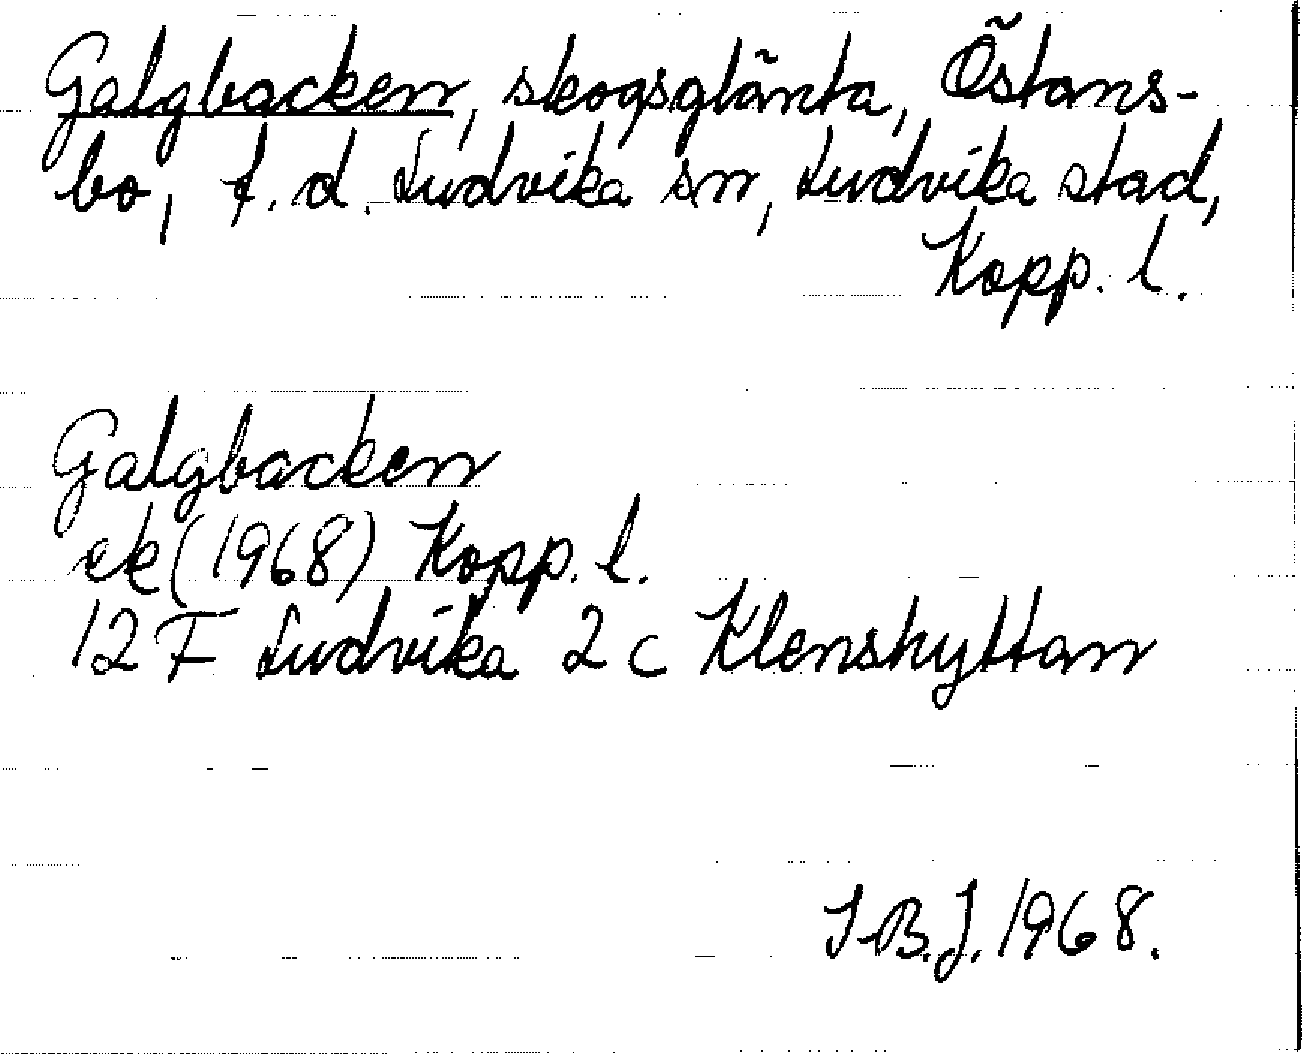 Galgbacken, skogsglänta, Östans-
bo, f.d. Ludvika sn, Ludvika stad,
Kopp. l.
Galgbacken
ek (1968) Kopp. l.
12 F Ludvika 2 c Klenshyttan
I.B.J. 1968.